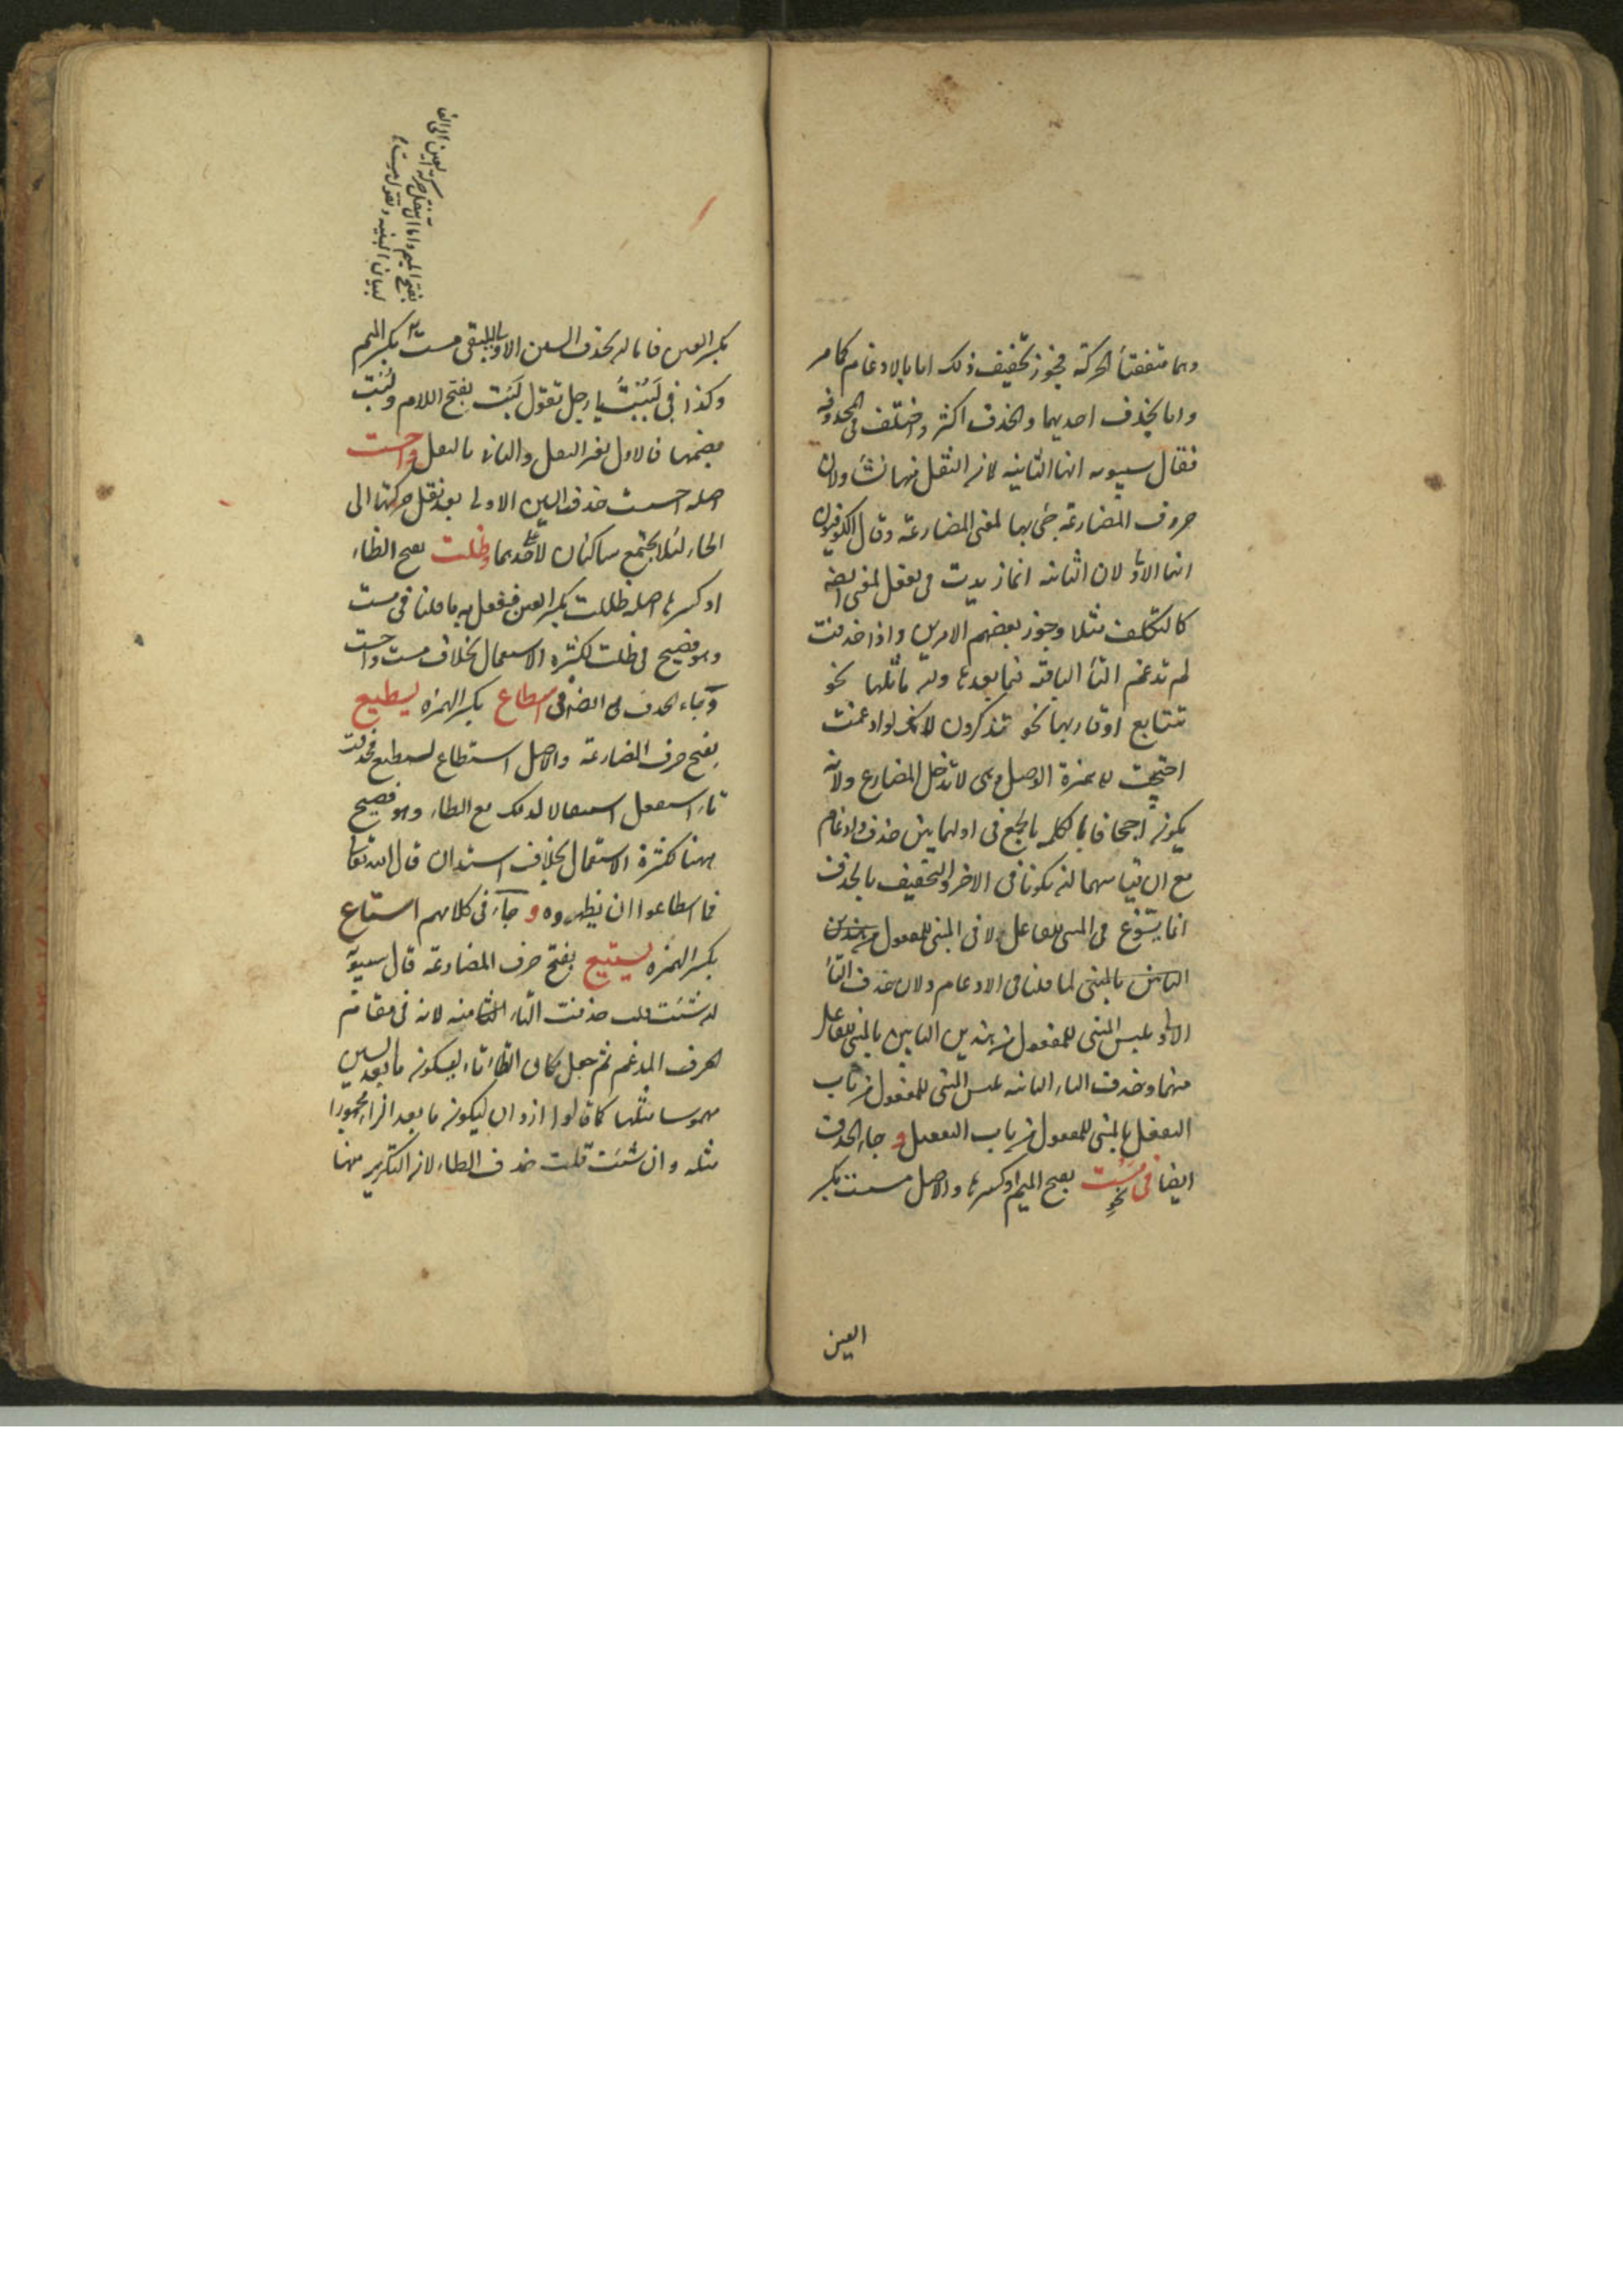 وهما متفقتا الحركة فيجوز تخفيف ذلك اما بالادغام كما مر
واما بحذف احديهما والحذف اكثر واختلف فى المحذوفة
فقال سيبويه انها الثانية لان الثقل منها نشأ ولان
حروف المضارعة جئ بها لمعنى المضارعة وقال الكوفيون
انها الاولى لان الثانية انما زيدت فى تفعل لمعنى ايضا
كالتكلف مثلا وجوز بعضهم الامرين واذا حذفت
لم تدغم التاء الباقية فيما بعدها وان ماثلها نحو
تتتابع او قاربها نحو تتذكرون لانك لو ادغمت
احتيجت الى همزة الوصل وهى لا تدخل المضارع ولانه
يكون اجحافا بالكلمة بالجمع فى اولها بين حذف وادغام
مع ان قياسهما ان يكونا فى الاخر والتخفيف بالحذف
انما يسوغ فى المبنى للفاعل لا فى المبنى للمفعول من هذين
البابين بالمبنى لما قلنا فى الادغام ولان حذف التاء
الاولى يلبس المبنى للمفعول من هذين البابين بالمبنى للفاعل
منهما وحذف التاء الثانية يلبس المبنى للمفعول من باب
التفعل بالمبنى للمفعول من باب التفعيل و جاء الحذف
ايضا فى نحو مست بفتح الميم او كسرها والاصل مسست بكسر
العين
بكسر العين فاما ان بحذف السين الاولى ليبقى مست بكسر الميم
وكذا فى لببت يا رجل تقول لبت بفتح اللام ولبت
بضمها فالاول بغير النقل والثانى بالنقل واحست
اصله احسست حذف السين الاولى بعد نقل حركتها الى
الحاء لئلا يجتمع ساكنان لا على حدهما وظلت بفتح الظاء
او كسرها اصله ظللت بكسر العين ففعل به ما قلنا فى مست
وهو فصيح فى ظلت لكثرة الاستعمال بخلاف مست واحست
وجاء الحذف ايضا فى اسطاع بكسر الهمزة يسطيع
بفتح حرف المضارعة والاصل استطاع يستطيع فحذفت
تاء استفعل استثقالا لذلك مع الطاء وهو فصيح
ههنا لكثرة الاستعمال بخلاف استدان قال الله تعالى
فما اسطاعوا ان يظهروه و جاء فى كلامهم استاع
بكسر الهمزة يستيع بفتح حرف المضارعة قال سيبويه
ان شئت قلت حذفت التاء منه لانه فى مقام
الحرف المدغم ثم جعل مكان الطاء تاء ليكون ما بعد السين
مهموسا مثلها كما قالوا ازدان ليكون ما بعد الزاء مجهورا
مثله وان شئت قلت حذف الطاء لان التكرير منها